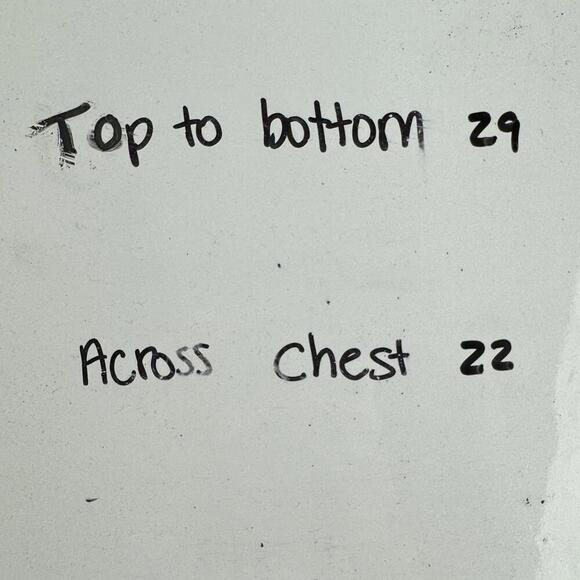 Top to bottom 29
Across Chest 22